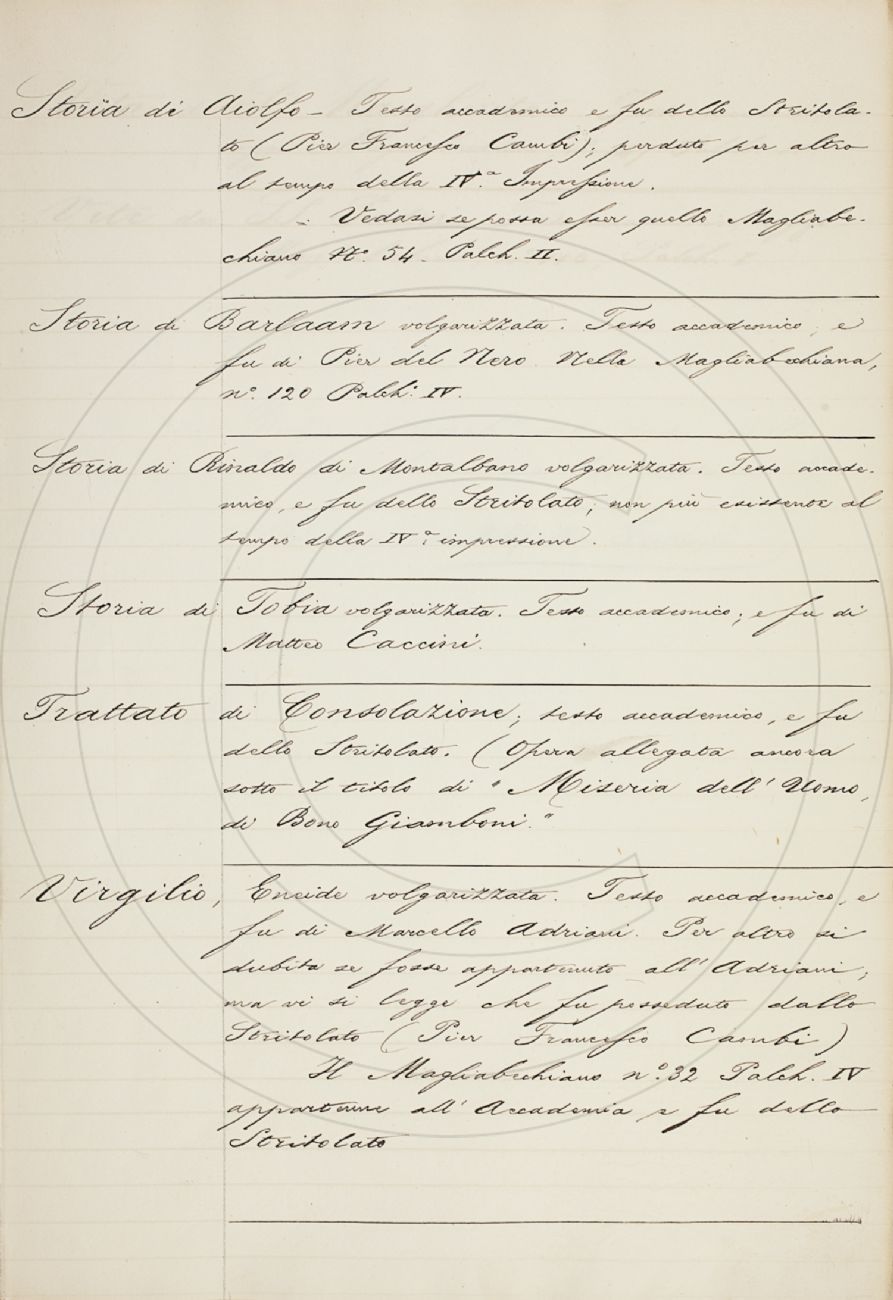 Storia di Aiolfo – Testo accademico e fu dello Stritola-
to (Pier Francesco Cambi); perduto per altro
al tempo della IV.ª Impressione.
– Vedasi se possa esser quello Magliabe-
chiano Nº. 54 – Palch. II.
Storia di Barlaam volgarizzata. Testo accademico; e
fu di Pier del Nero. Nella Magliabechiana,
nº. 120 Palch: IV.
Storia di Rinaldo di Montalbano volgarizzata. Testo accade-
mico, e fu dello Stritolato; non più esistente al
tempo della IVª. impressione.
Storia di Tobia volgarizzata. Testo accademico; e fu di
Matteo Caccini.
Trattato di Consolazione; testo accademico, e fu
dello Stritolato. (Opera allegata ancora
sotto il titolo di "Miseria dell' Uomo,
di Bono Giamboni."
Virgilio, Eneide volgarizzata. Testo accademico, e
fu di Marcello Adriani. Per altro si
dubita se fosse appartenuto all' Adriani;
ma vi si legge che fu posseduto dallo
Stritolato (Pier Francesco Cambi)
Il Magliabechiano nº. 32 Palch. IV
appartenne all' Accademia e fu dello
Stritolato